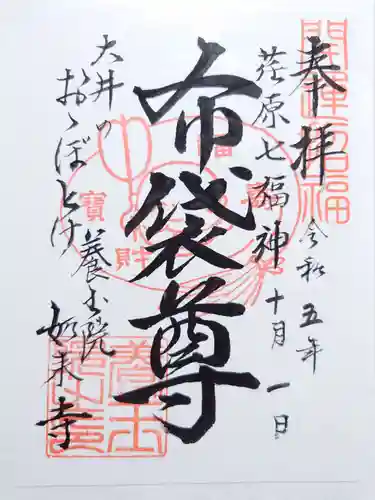 奉拝
令和五年
十月一日
荏原七福神
布袋尊
大井の
おゝぼとけ
養玉院
如来寺
開運招福